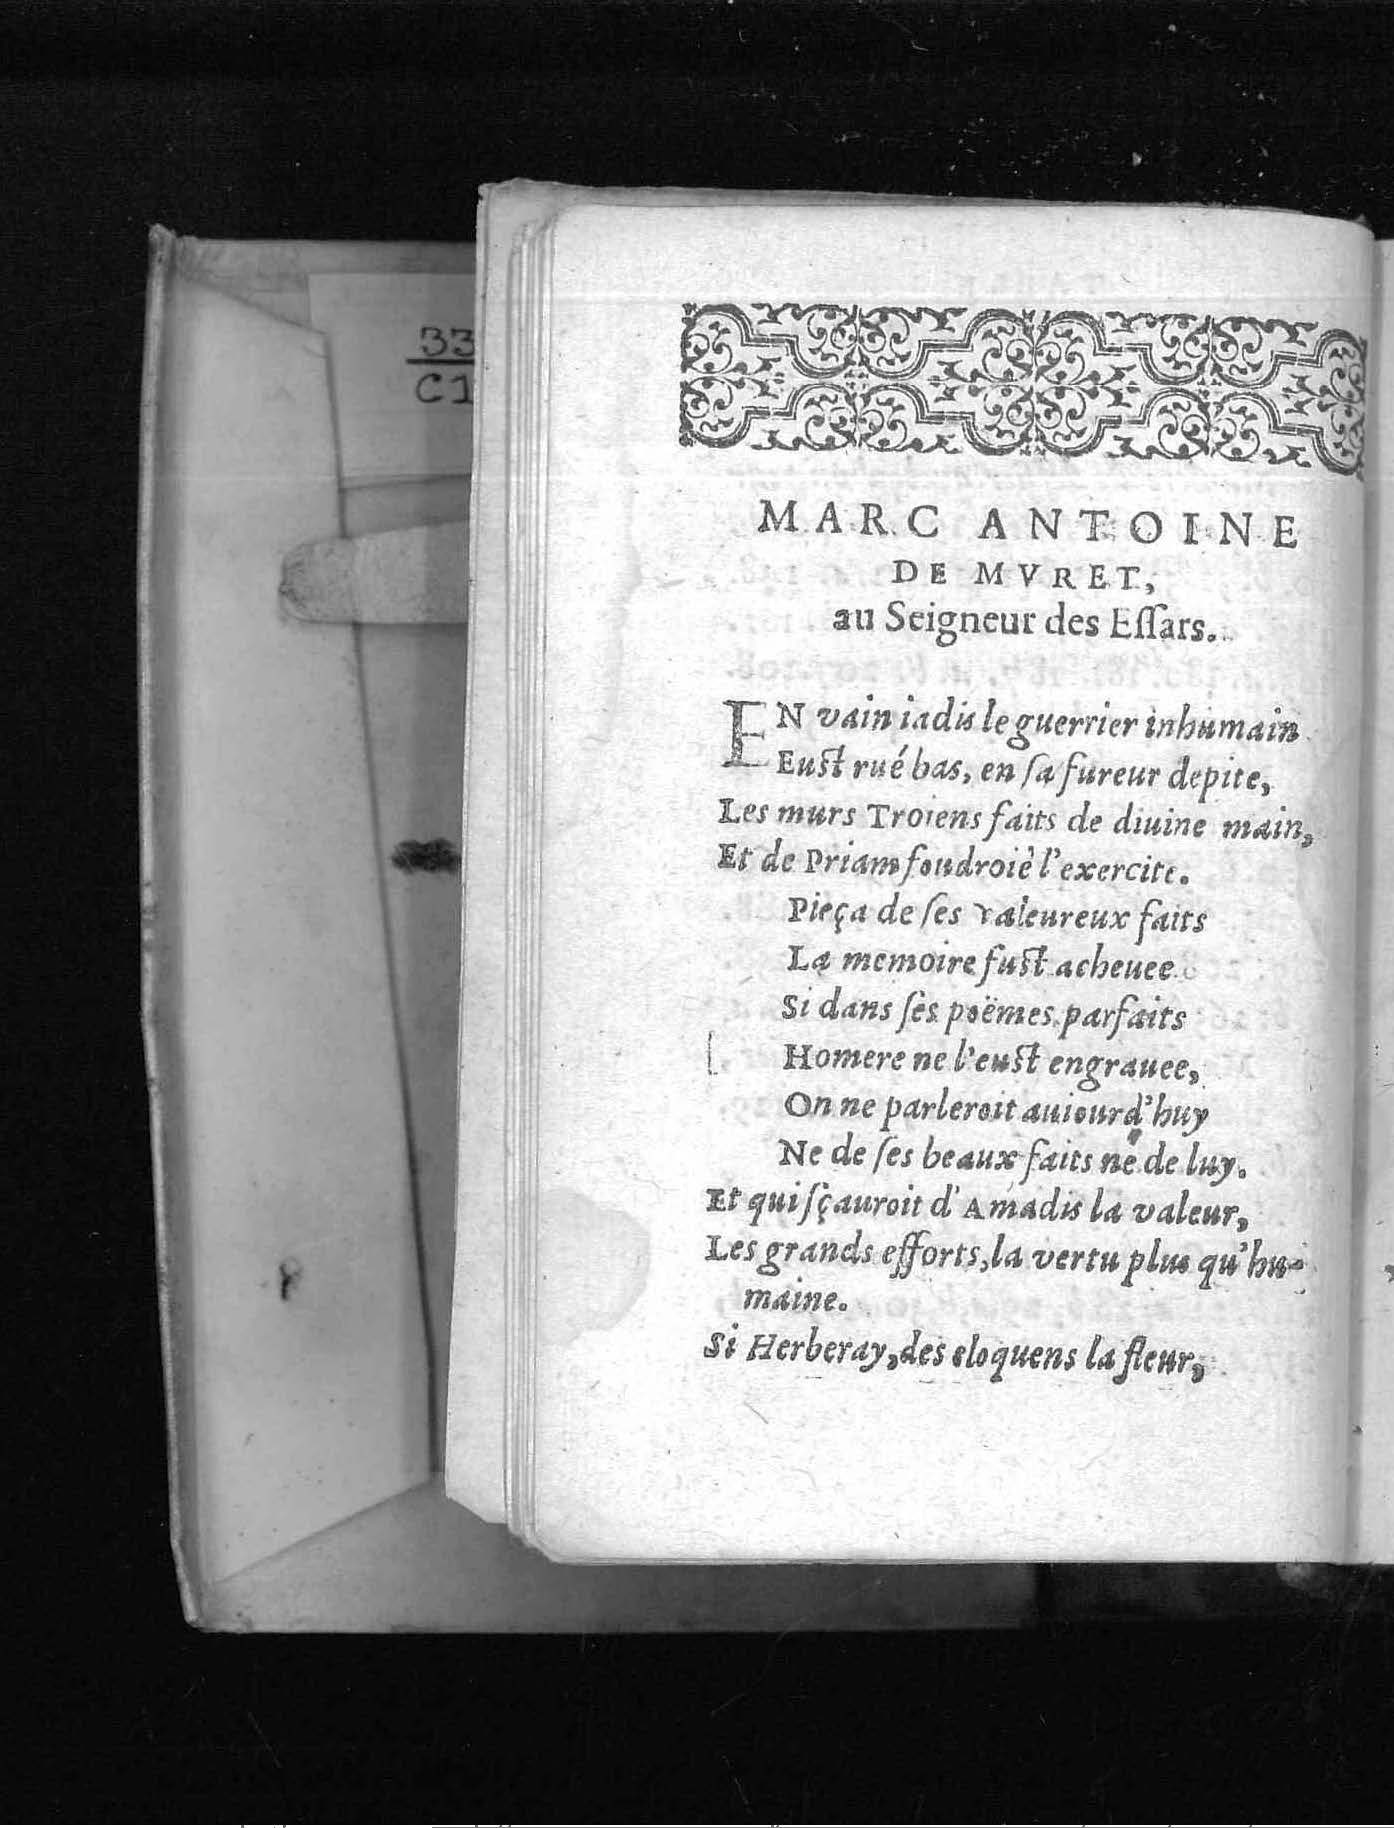 33
C1
MARC ANTOINE
DE MVRET,
au Seigneur des Eſſars.
EN vain iadis le guerrier inhumain
Euſt rué bas, en ſa fureur depite,
Les murs Troiens faits de diuine main,
Et de Priam foudroié l'exercite.
Pieça de ſes valeureux faits
La memoire fuſt acheuee
Si dans ſes poëmes parfaits
Homere ne l'euſt engrauee,
On ne parleroit auiourd'huy
Ne de ſes beaux faits ne de luy.
Et qui ſçauroit d'Amadis la valeur,
Les grands efforts, la vertu plus qu'hu-
maine.
Si Herberay, des eloquens la fleur,